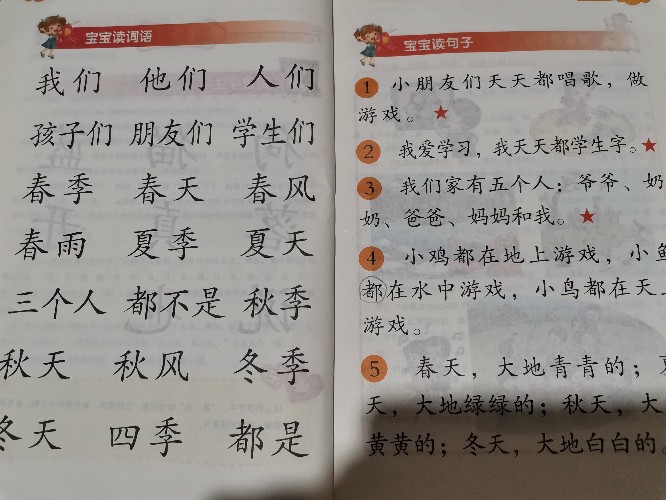 宝宝读词语
我们 他们 人们
孩子们 朋友们 学生们
春季 春天 春风
春雨 夏季 夏天
三个人 都不是 秋季
秋天 秋风 冬季
冬天 四季 都是
宝宝读句子
1 小朋友们天天都唱歌，做
游戏。★
2 我爱学习，我天天都学生字。★
3 我们家有五个人：爷爷、奶
奶、爸爸、妈妈和我。★
4 小鸡都在地上游戏，小鱼
都在水中游戏，小鸟都在天上
游戏。
5 春天，大地青青的；夏
天，大地绿绿的；秋天，大
黄黄的；冬天，大地白白的。